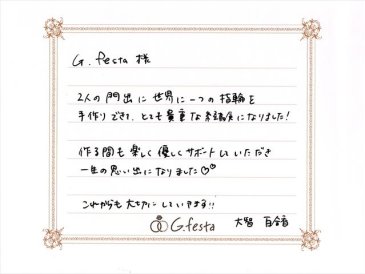 G.festa 様
2人の門出に世界に一つの指輪を
手作りできて、とても貴重な経験になりました!
作る間も楽しく優しくサポートしていただき
一生の思い出になりました♡♡
これからも大切にしていきます!!
G.festa